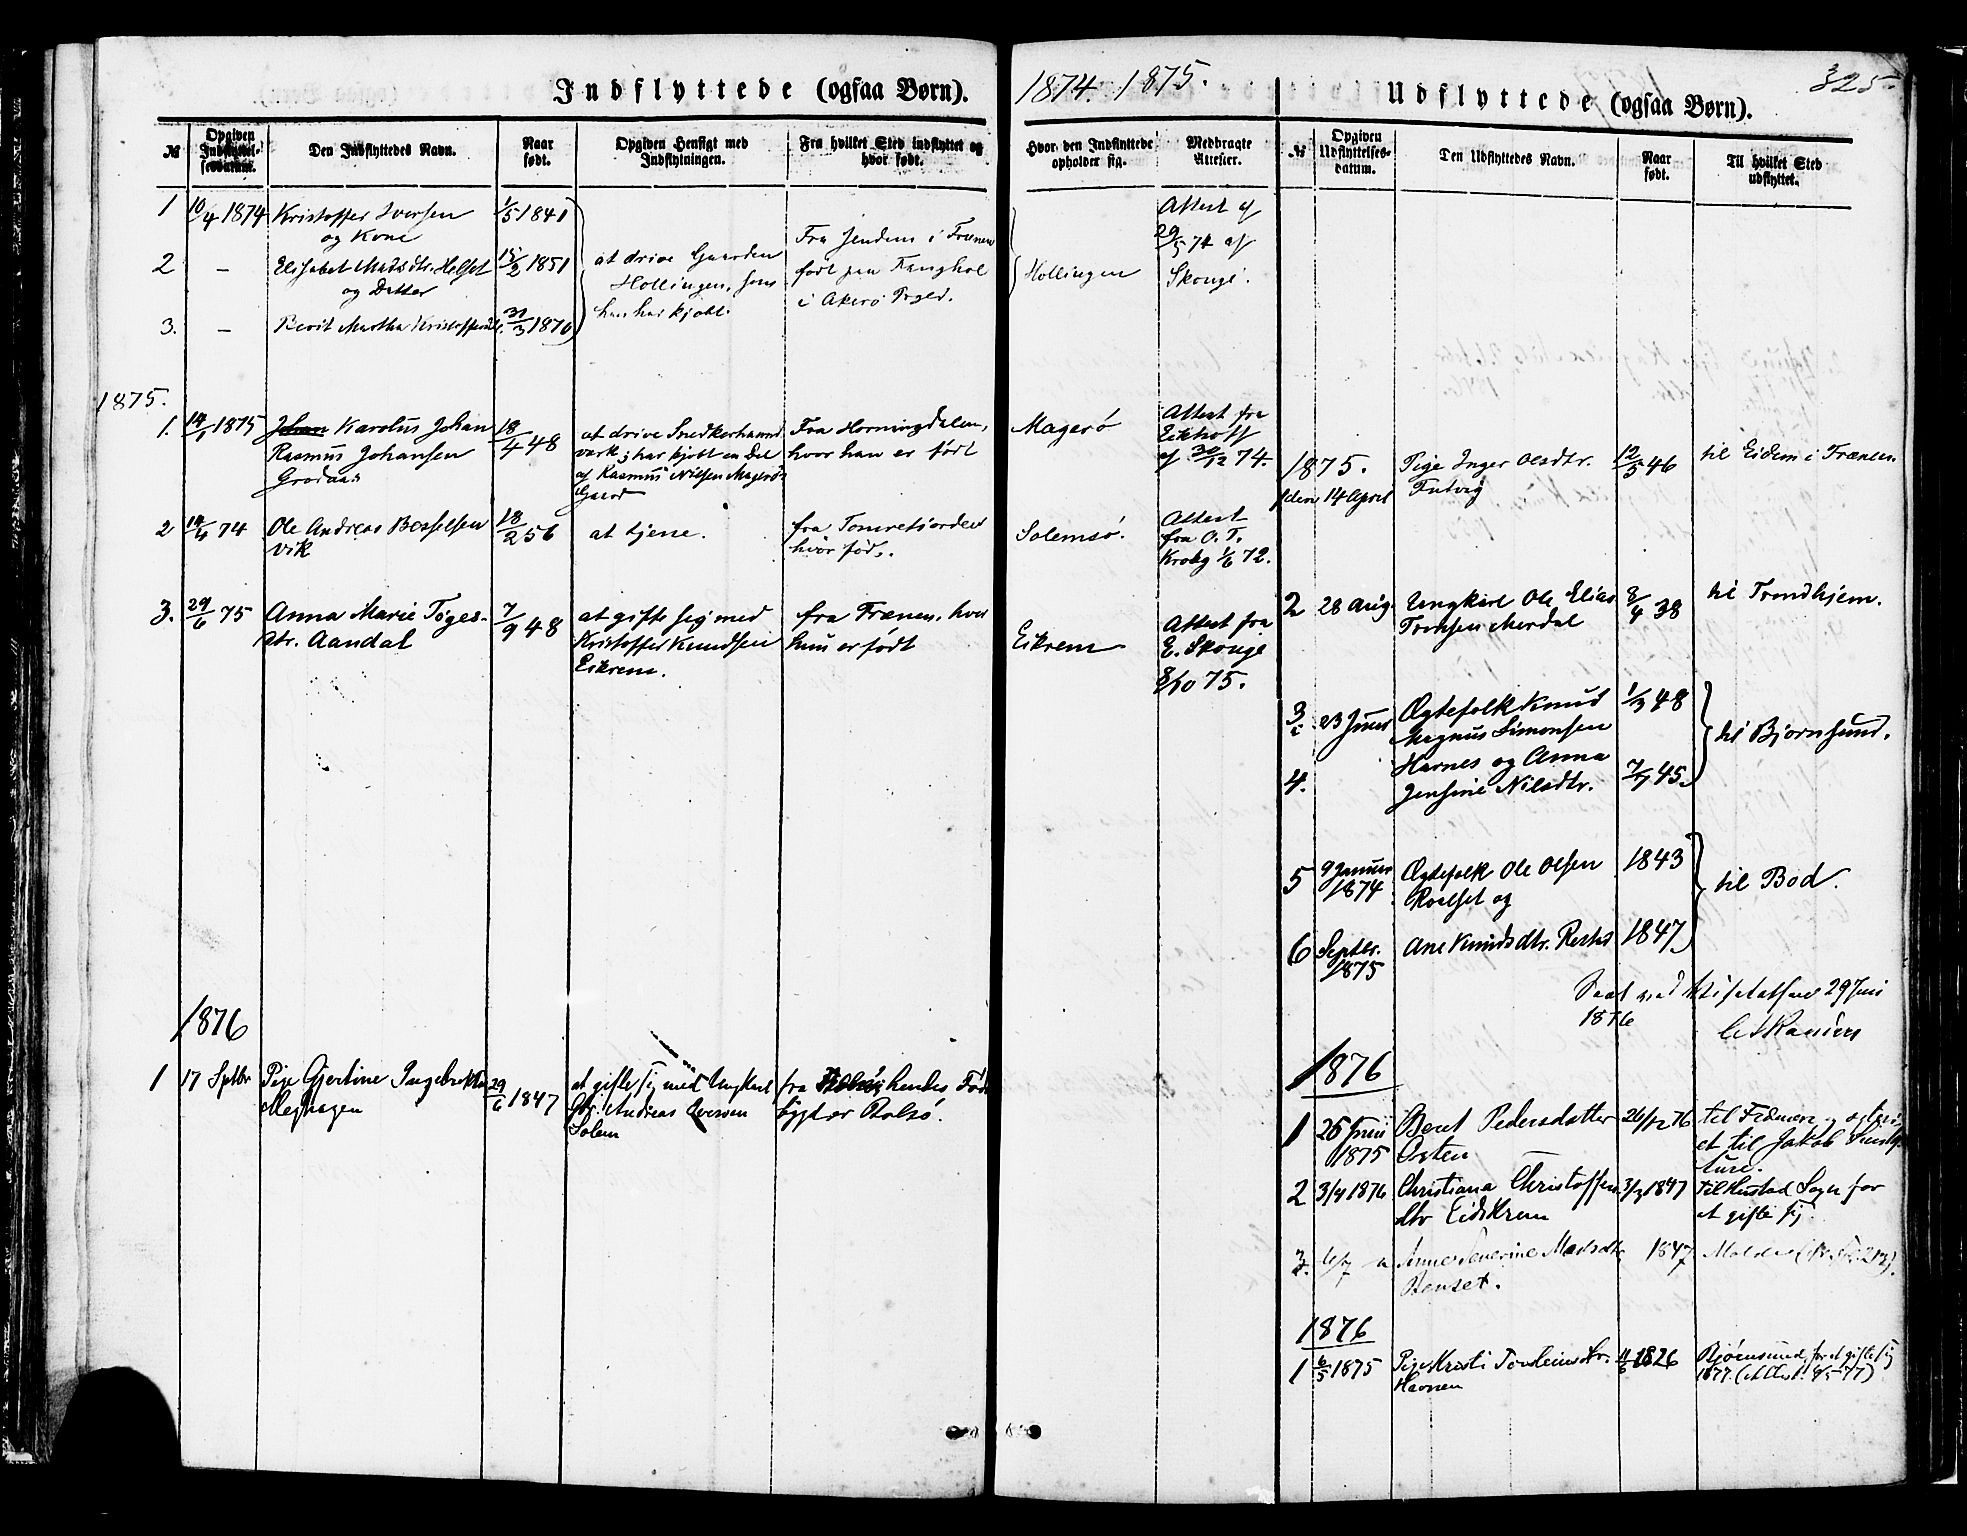 Indflyttede (ogsaa Børn).
1874. 1875.
Udflyttede (ogsaa Børn).
325.
№
Opgiven Indflyttel- sesdatum.
Den Indflyttedes Navn.
Naar født.
Opgiven Hensigt med Indflytningen.
Fra hvilket Sted indflyttet og hvor født.
Hvor den Indflyttede opholder sig.
Medbragte Attester.
1 10/4 1874 Kristoffer Iversen 1/5 1841
og Kone
2 - Elisabet Madsdtr. Helset 15/2 1851
og Datter
3. - Berit Martha Kristoffersdtr. 31/3 1870
at drive Gaarden
Hollingen, som
han har kjøbt.
Fra Jendem i Frænen
født paa
i Akerø Prgld.
Hollingen
Attest af
29/5 74 af
Skouge.
1875.
1. 14/1 1875 Johan Karolus Johan 18/4 48
Rasmus Johansen
Grodaas
at drive Snedkerhaand
værk; har kjøbt en Del
af Rasmus Nilsen Magerøs
Gaard
Fra Horningdalen,
hvor han er født
Magerø
Attest fra
Eikhoff
af 30/12 74.
2 14/4 74 Ole Andreas Besselsen 18/2 56
Vik
at tjene.
fra Tomrefjorden
hvor fød.
Solemsø.
Attest
fra O. T.
Krohg 1/6 72.
3. 29/6 75 Anna Marie Tøges- 7/9 48
dtr. Aandal
at gifte sig med
Kristoffer Knudsen
Eikrem.
fra Frænen, hvor
hun er født
Eikrem
Attest fra
E. Skouge
8/10 75.
1876
1 17 Sptbr Pige Gjertine Ingebrektsd 29/6 1847
Meghagen
at gifte sig med Ungkarl
Andreas Iversen
Solem
fra hendes Føde
bygd er Bolsø.
№
Opgiven Udflyttelses- datum.
Den Udflyttedes Navn.
Naar født.
Til hvilket Sted udflyttet.
1875. Pige Inger Olsdtr. 12/5 46 til Eidem i Frænen
1 den 14 April
2 28 Aug. Ungkarl Ole Elias 8/4 38 til Trondhjem.
Tronsen Merdal
3 23 Juni Ægtefolk Knud 1/3 48
Magnus Simonsen
4. Harnes og Anna 7/7 45.
Jensine Nilsdtr.
til Bjørnsund.
5 9 Januar Ægtefolk Ole Olsen 1843
1874 Roalset og
6 Septbr. Ane Knudsdtr. 1847
1875
til Bod.
Seet ved Visitatsen 29 Juni
1876
1876
1 26 Juni Beret Pedersdatter 26/12 76 til
1875 Orten
et til Jakob
2 3/4 1876 Christiana Christoffers 3/3 1847 til Hustad Sogn for
dtr Eidskrem at gifte sig
3. 6/7 Anne Severine Madsdtr 1847 Molde
Henset.
1876
1 6/5 1875 Pige Kristi Torsteinsdtr. 11/6 1826 Bjørnsund, for at gifte sig
Havnen 1877. (Attest 8/5 77)